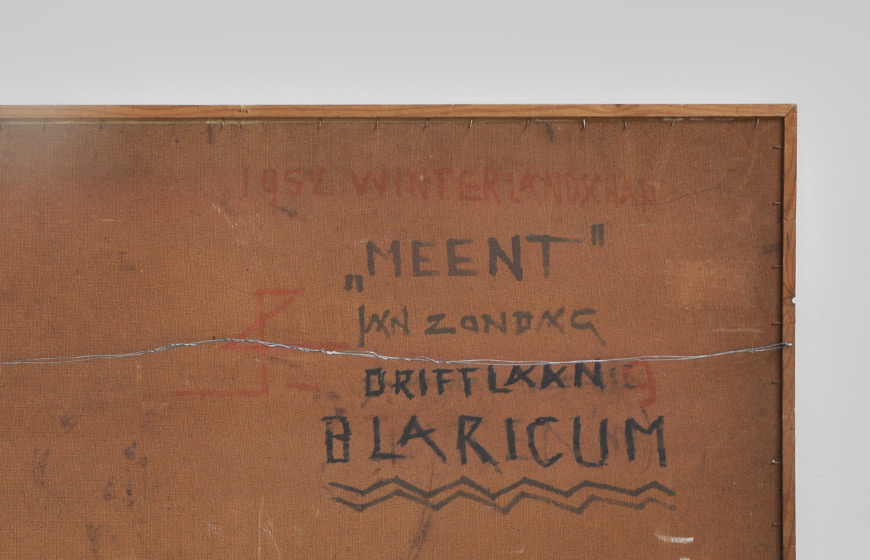 1952 WINTERLANDSCHAP
„MEENT"
JAN ZONDAG
DRIFTLAAN
BLARICUM